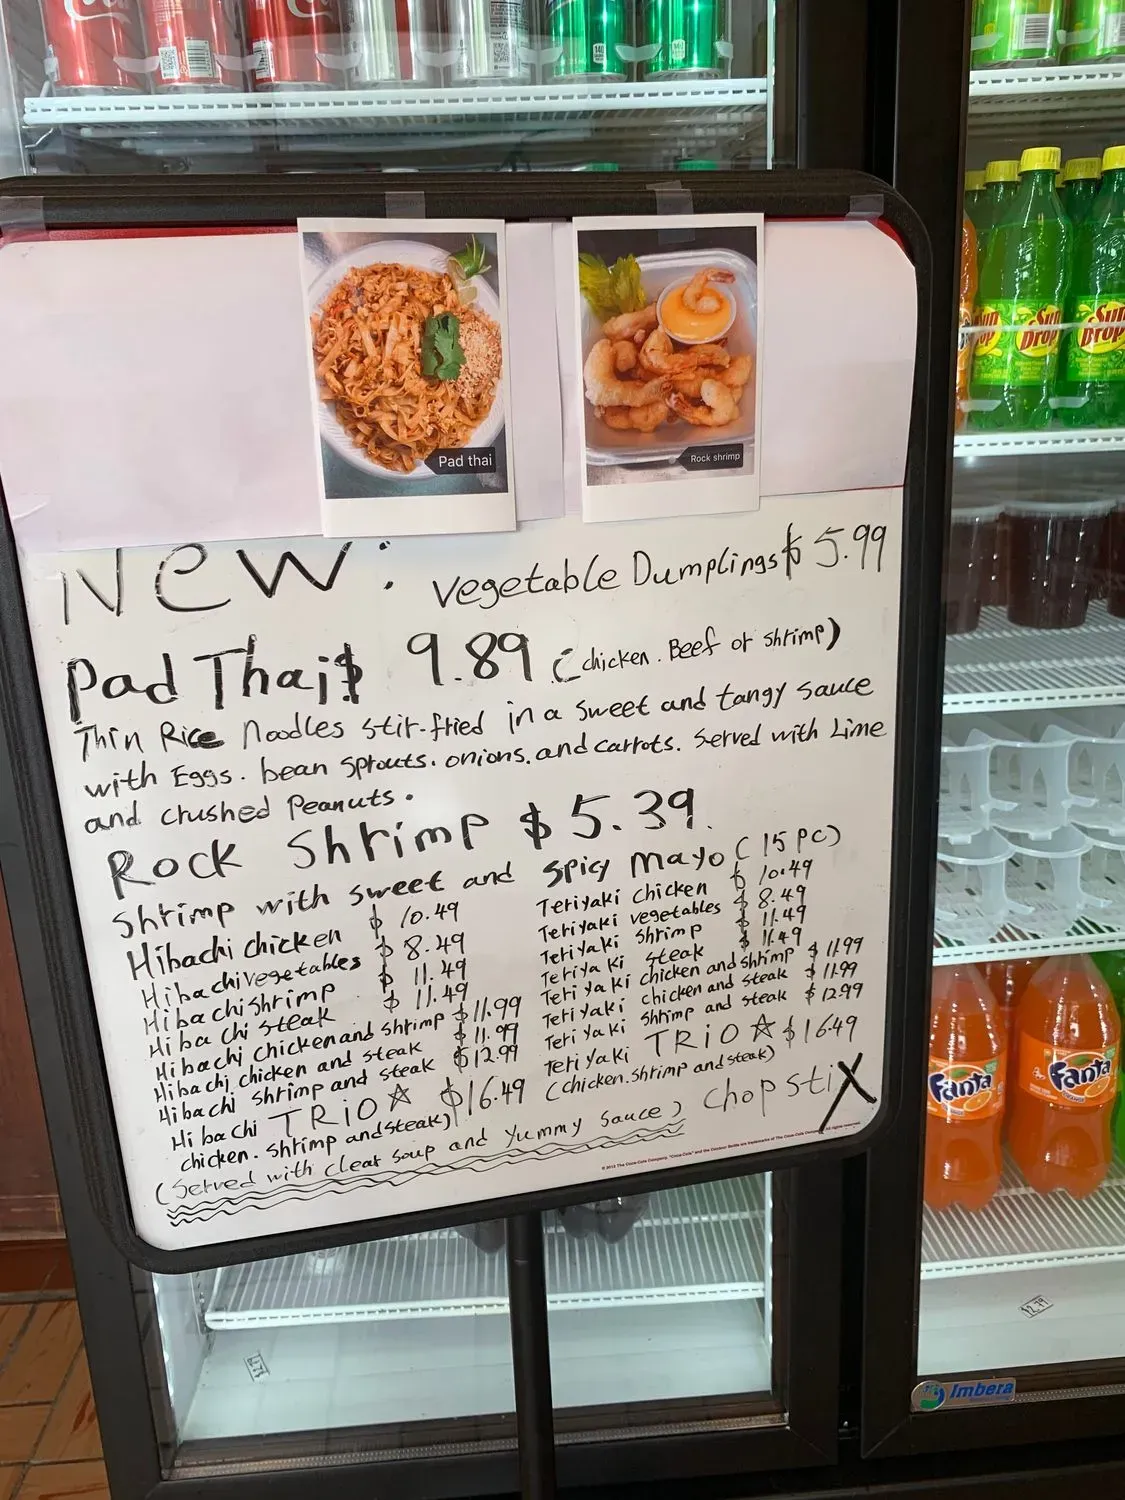 Pad thai
Rock shrimp
New: Vegetable Dumplings $ 5.99
Pad Thai $ 9.89 (chicken. Beef or shrimp)
Thin Rice Noodles stir-fried in a sweet and tangy sauce
with Eggs. bean sprouts. onions. and carrots. Served with Lime
and crushed Peanuts.
Rock Shrimp $ 5.39
Shrimp with sweet and spicy mayo (15 pc)
Hibachi chicken $ 10.49
Hibachi vegetables $ 8.49
Hibachi shrimp $ 11.49
Hibachi steak $ 11.49
Hibachi chicken and shrimp $11.99
Hibachi chicken and steak $11.99
Hibachi shrimp and steak $12.99
Hibachi TRiO ☆ $16.49
chicken. shrimp and steak)
Teriyaki chicken $ 10.49
Teriyaki vegetables $ 8.49
Teriyaki shrimp $ 11.49
Teriyaki steak $ 11.49
Teriyaki chicken and shrimp $ 11.99
Teriyaki chicken and steak $ 11.99
Teriyaki shrimp and steak $ 12.99
Teriyaki TRiO ☆ $16.49
(chicken. shrimp and steak)
(Served with clear soup and yummy sauce)
Chopstix
Sun
Drop
Sun
Drop
Fanta
Fanta
$2.79
Imbera